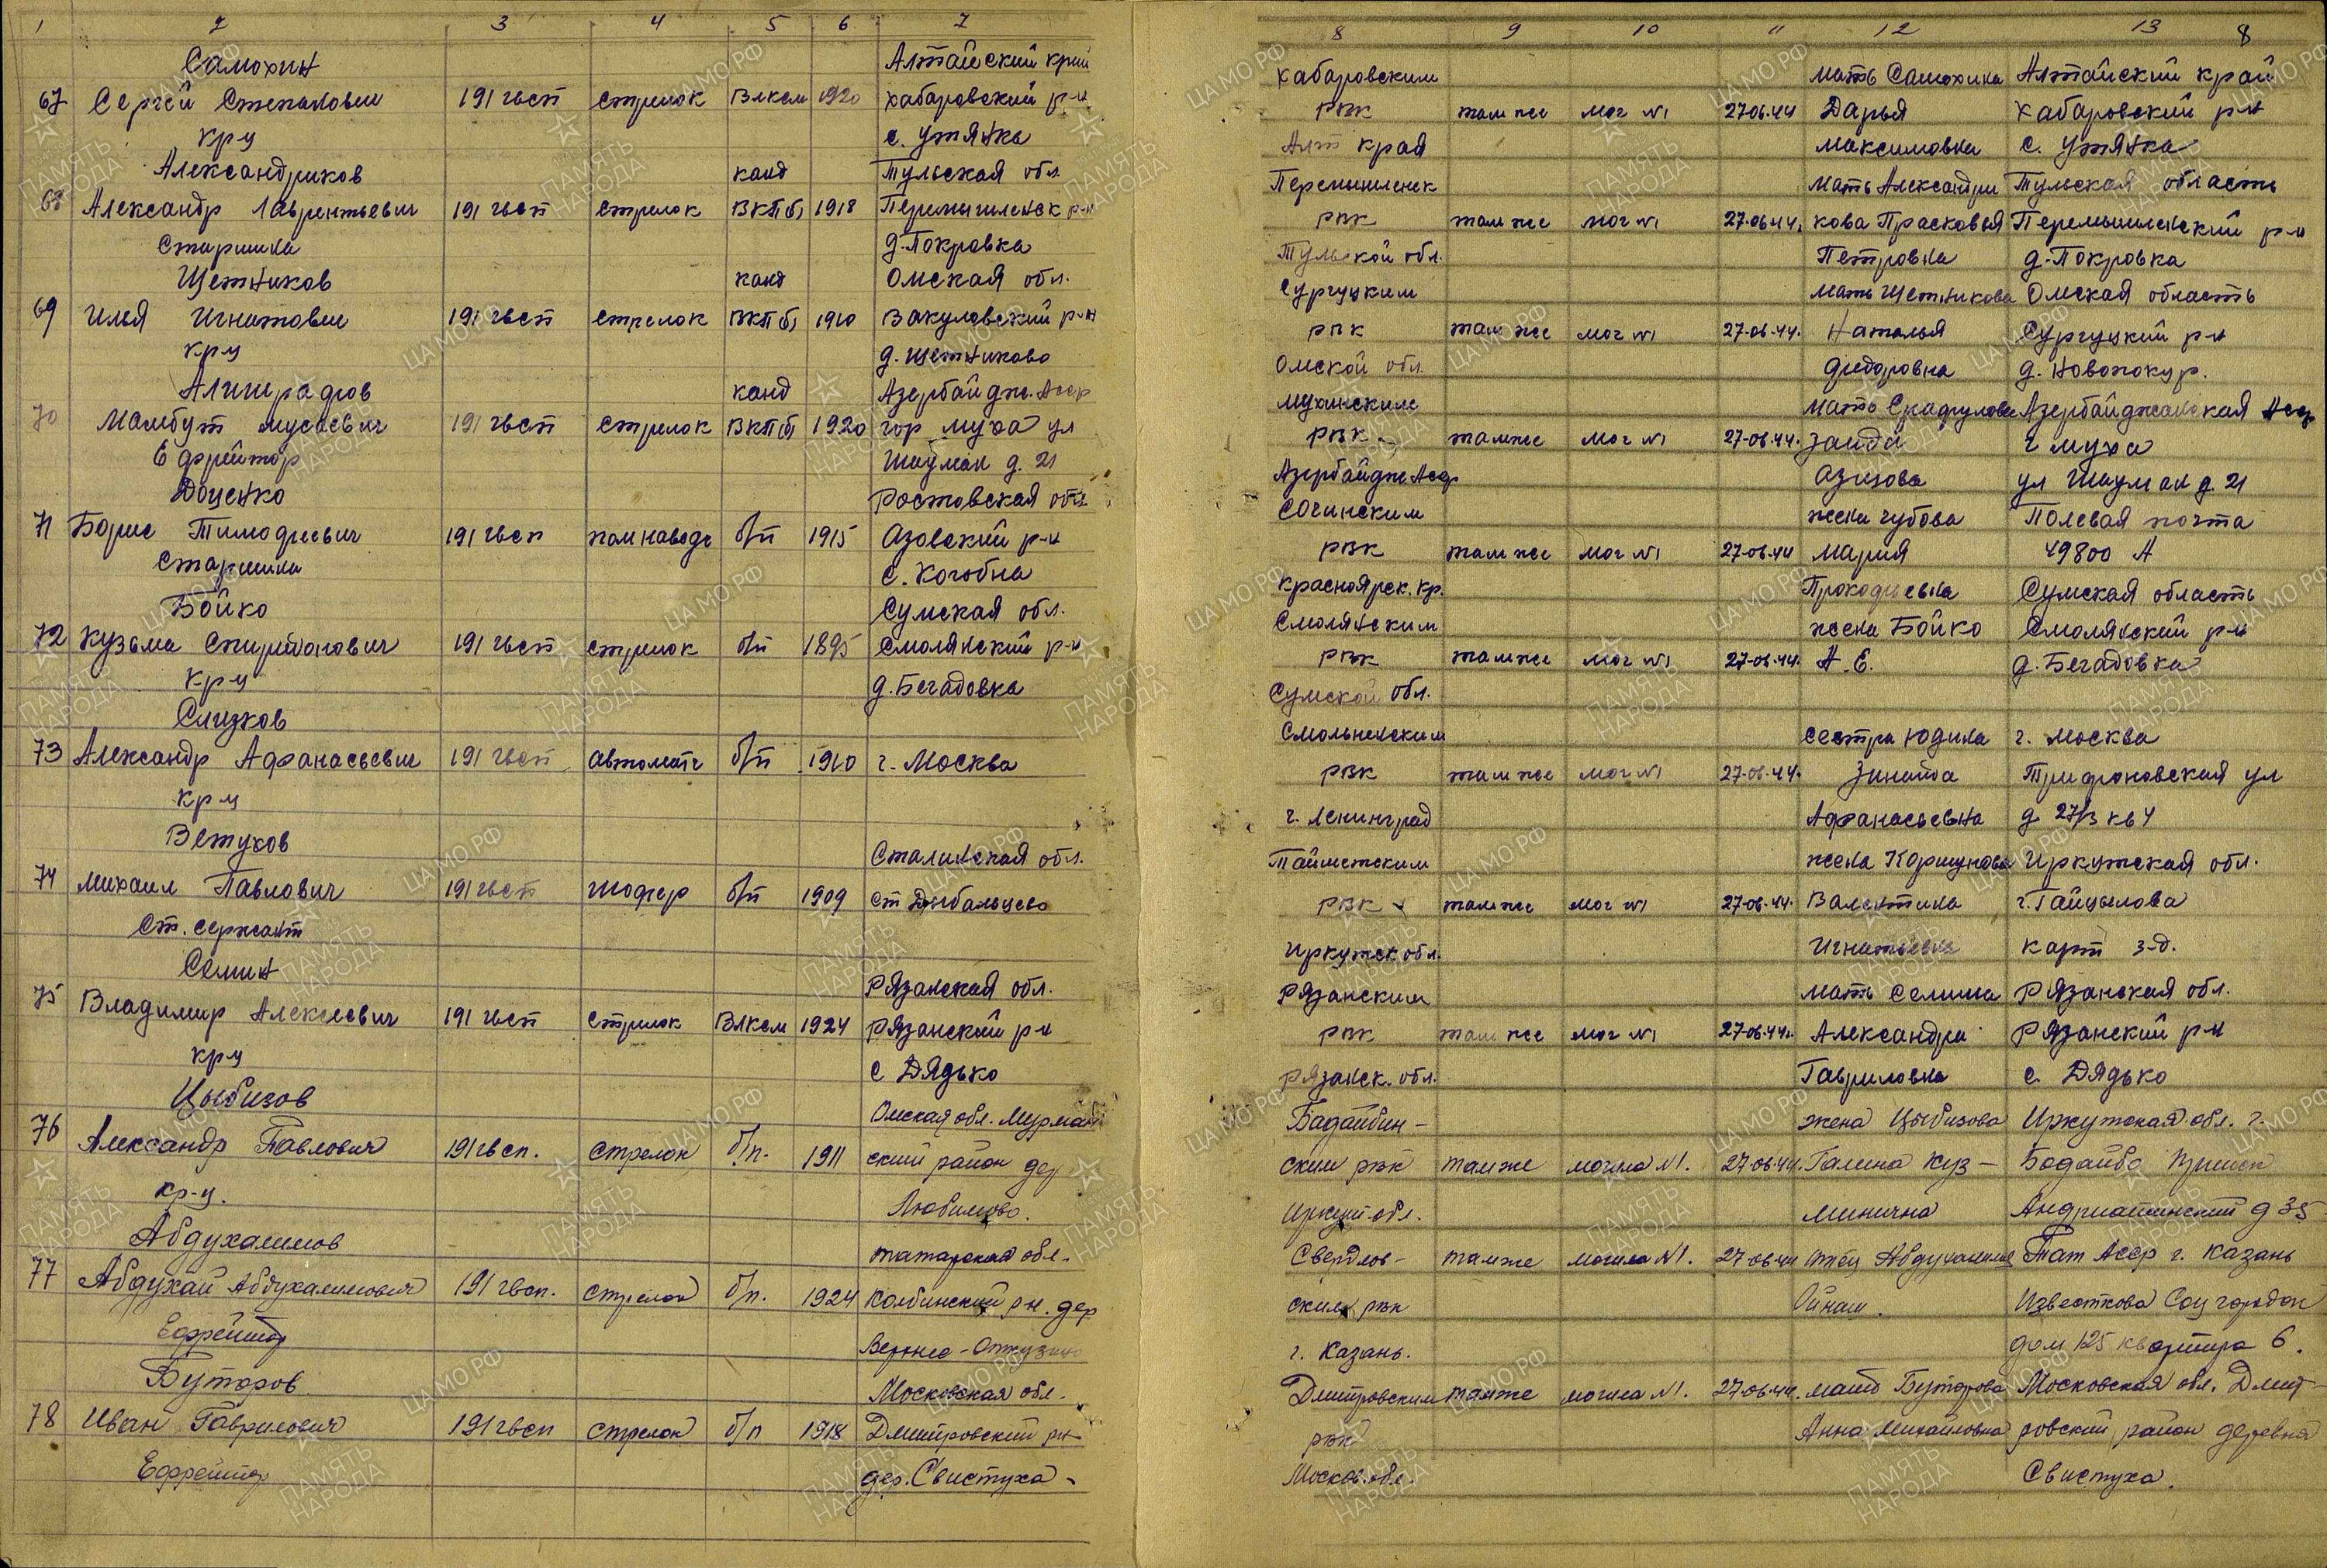 1 2 3 4 5 6 7
Самохин Алтайский край
67 Сергей Степанович 191 гвсп стрелок Влксм 1920 хабаровский р-н
кр ц с. Утянка
Александриков канд Тульская обл.
68 Александр Лаврентьевич 191 гвсп стрелок ВКПб) 1918 Перемышленск р-н
Старшина д. Покровка
Щетников канд Омская обл.
69 Илья Игнатович 191 гвсп стрелок ВКПб) 1910 Викуловский р-н
кр ц д. Щетниково
Алишрафов канд Азербайдж. Асср
70 Мамбут Мусаевич 191 гвсп стрелок ВКПб) 1920 гор муха ул
Ефрейтор Шаумян д. 21
Доценко Ростовская обл
71 Борис Тимофеевич 191 гвсп помнаводч б/п 1915 Азовский р-н
старшина с. Когобна
Бойко Сумская обл.
72 Кузьма Спиридонович 191 гвсп стрелок б/п 1895 Смолянский р-н
кр ц д. Бегадовка
Слизков
73 Александр Афанасьевич 191 гвсп автоматч б/п 1910 г. Москва
кр ц
Ветухов Сталинская обл.
74 Михаил Павлович 191 гвсп шофер б/п 1909 ст Дебальцево
Ст. сержант
Семин Рязанская обл.
75 Владимир Алексеевич 191 гвсп стрелок Влксм 1924 Рязанский р-н
кр ц с Дядько
Цыбизов Омская обл. Мурман
76 Александр Павлович 191гвсп. стрелок б/п. 1911 ский район дер
кр-ц. Любимово.
Абдухалимов татарская обл.
77 Абдухай Абдухалимович 191 гвсп. стрелок б/п. 1924 рн. дер
Ефрейтор Верхнее-
Буторов Московская обл.
78 Иван Гаврилович 191гвсп стрелок б/п 1918 Дмитровский рн
Ефрейтор дер. Свистуха
8 9 10 11 12 13 8
хабаровским мать Самохина Алтайский край
рвк там же мог №1 27.06.44 Дарья хабаровский р-н
Алт края максимовна с. Утянка
Перемышленск мать Александри Тульская область
рвк там же мог №1 27.06.44. кова Прасковья Перемышленский р-н
Тульской обл. Петровна д. Покровка
Сургуцким мать Щетникова Омская область
рвк там же мог №1 27-06.44. Наталья Сургуцкий р-н
Омской обл. фёдоровна д. Новопокур.
мухинским мать Азербайджанская Асср
рвк там же мог №1 27-06.44. Заида г муха
Азербайдж Асср Азизова ул Шаумян д. 21
Сочинским жена Чубова Полевая почта
рвк там же мог №1 27-06.44 мария 49800 А
Красноярск. кр. Прокофьевна Сумская область
Смолянским жена Бойко Смолянский р-н
рвк там же мог №1 27-06.44. А. Е. д. Бегадовка
Сумской обл.
Смольненским сестра Юдина г. Москва
рвк там же мог №1 27-06.44. Зинаида Трифоновская ул
г. Ленинград Афанасьевна д 27/3 кв 4
Тайшетским жена Коршунова Иркутская обл.
рвк там же мог №1 27-06.44. Валентина
Иркутск обл. Игнатьевна
Рязанским мать Семина Рязанская обл.
рвк там же мог №1 27-06.44г. Александра Рязанский р-н
Рязанск. обл. Гавриловна с. Дядько
Бадайбин- жена Цыбизова Иркутская обл. г.
ским рвк там же могила №1. 27-06-44. Галина Куз- Бодайбо
Иркут обл. минична д 35
Свердлов- там же могила №1. 27-06-44 отец Тат Асср г. Казань
ским рвк Соц городок
г. Казань. дом 125 квартира 6.
Дмитровским там же могила №1. 27-06-44. мать Буторова Московская обл. Дмит-
рвк Анна Михайловна ровский район деревня
Москов. обл. Свистуха.